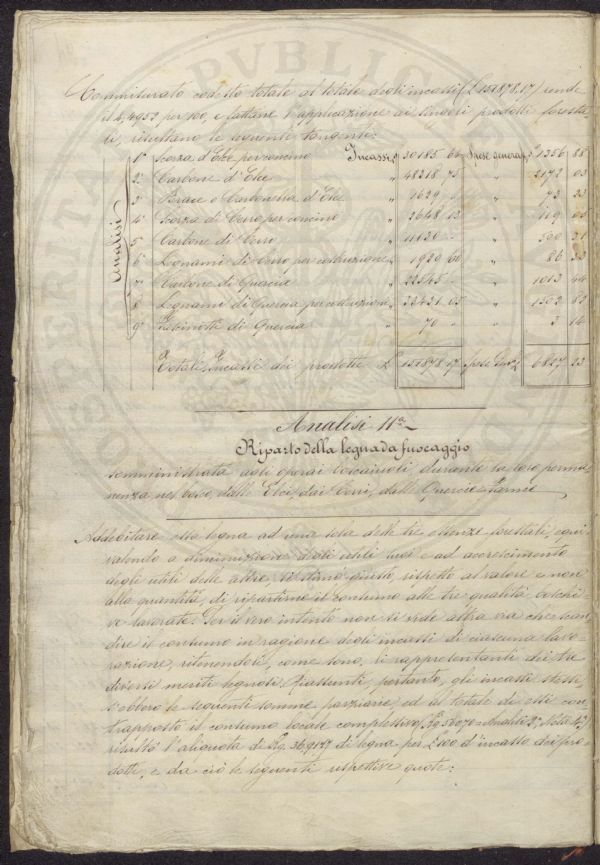 Commisurato codesto totale al totale degli incassi (£ 151878,17) rende
il 4,4952 per 100, e fattane l'applicazione ai singoli prodotti foresta
li, risultano le seguenti tangenti:
Analisi
1ª Scorza d'Elce per concino Incassi £ 30185 64 Spese generali £ 1356 88
2ª Carbone d'Elce " 48318 75 " 2172 03
3ª Brace o Carbonella d'Elce " 1629 " 73 23
4ª Scorza di Cerro per concino " 2648 13 " 119 03
5ª Carbone di Cerro " 11130 " 500 31
6ª Legnami di Cerro per costruzione " 1920 60 " 86 33
7ª Carbone di Quercia " 22545 " 1013 44
8ª Legnami di Quercia per costruzioni " 33431 05 " 1502 82
9ª di Quercia " 70 " 3 14
Totali, Incassi dei prodotti £ 151878 17 Spese Gen.li £ 6827 23
Analisi 11ª
Riparto della legna da fuocaggio
somministrata agli operai boscaiuoli, durante la loro perma
nenza nel bosco, dalle Elci, dai Cerri, dalle Quercie
Addebitare essa legna ad una sola delle tre essenze forestali, equi
valendo a diminuzione degli utili suoi e ad accrescimento
agli utili delle altre, si stimò giusto, rispetto al valore e non
alla quantità, di ripartirne il consumo alle tre qualità
lavorate. Per il vero intento non si vide altra via che scan
dire il consumo in ragione degli incassi di ciascuna lavo
razione, ritenendoli, come sono, li rappresentanti dei tre
diversi meriti legnosi. Riassunti, pertanto, gli incassi stessi,
s'ebbero le seguenti somme parziarie, ed al totale di esse con
trapposto il consumo locale complessivo (Kg. 56070 = Analisi Nota 4ª)
risultò l'aliquota di Kg. 36,9177 di legna per £ 100 d'incasso dei pro
dotti, e da ciò le seguenti rispettive quote: